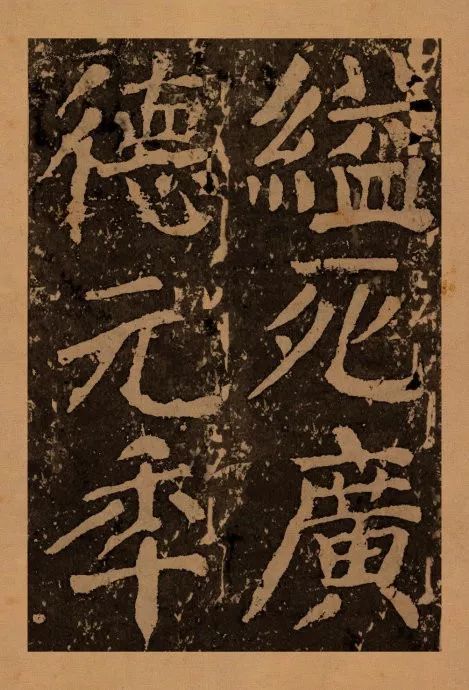 縊死廣
德元年